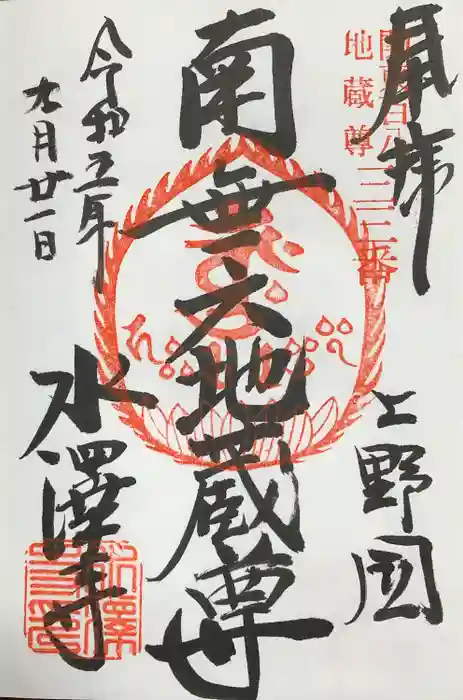 奉拝
関東百八
地蔵尊
三三番
上野国
南無六地蔵尊
令和五年
九月廿一日
水澤寺